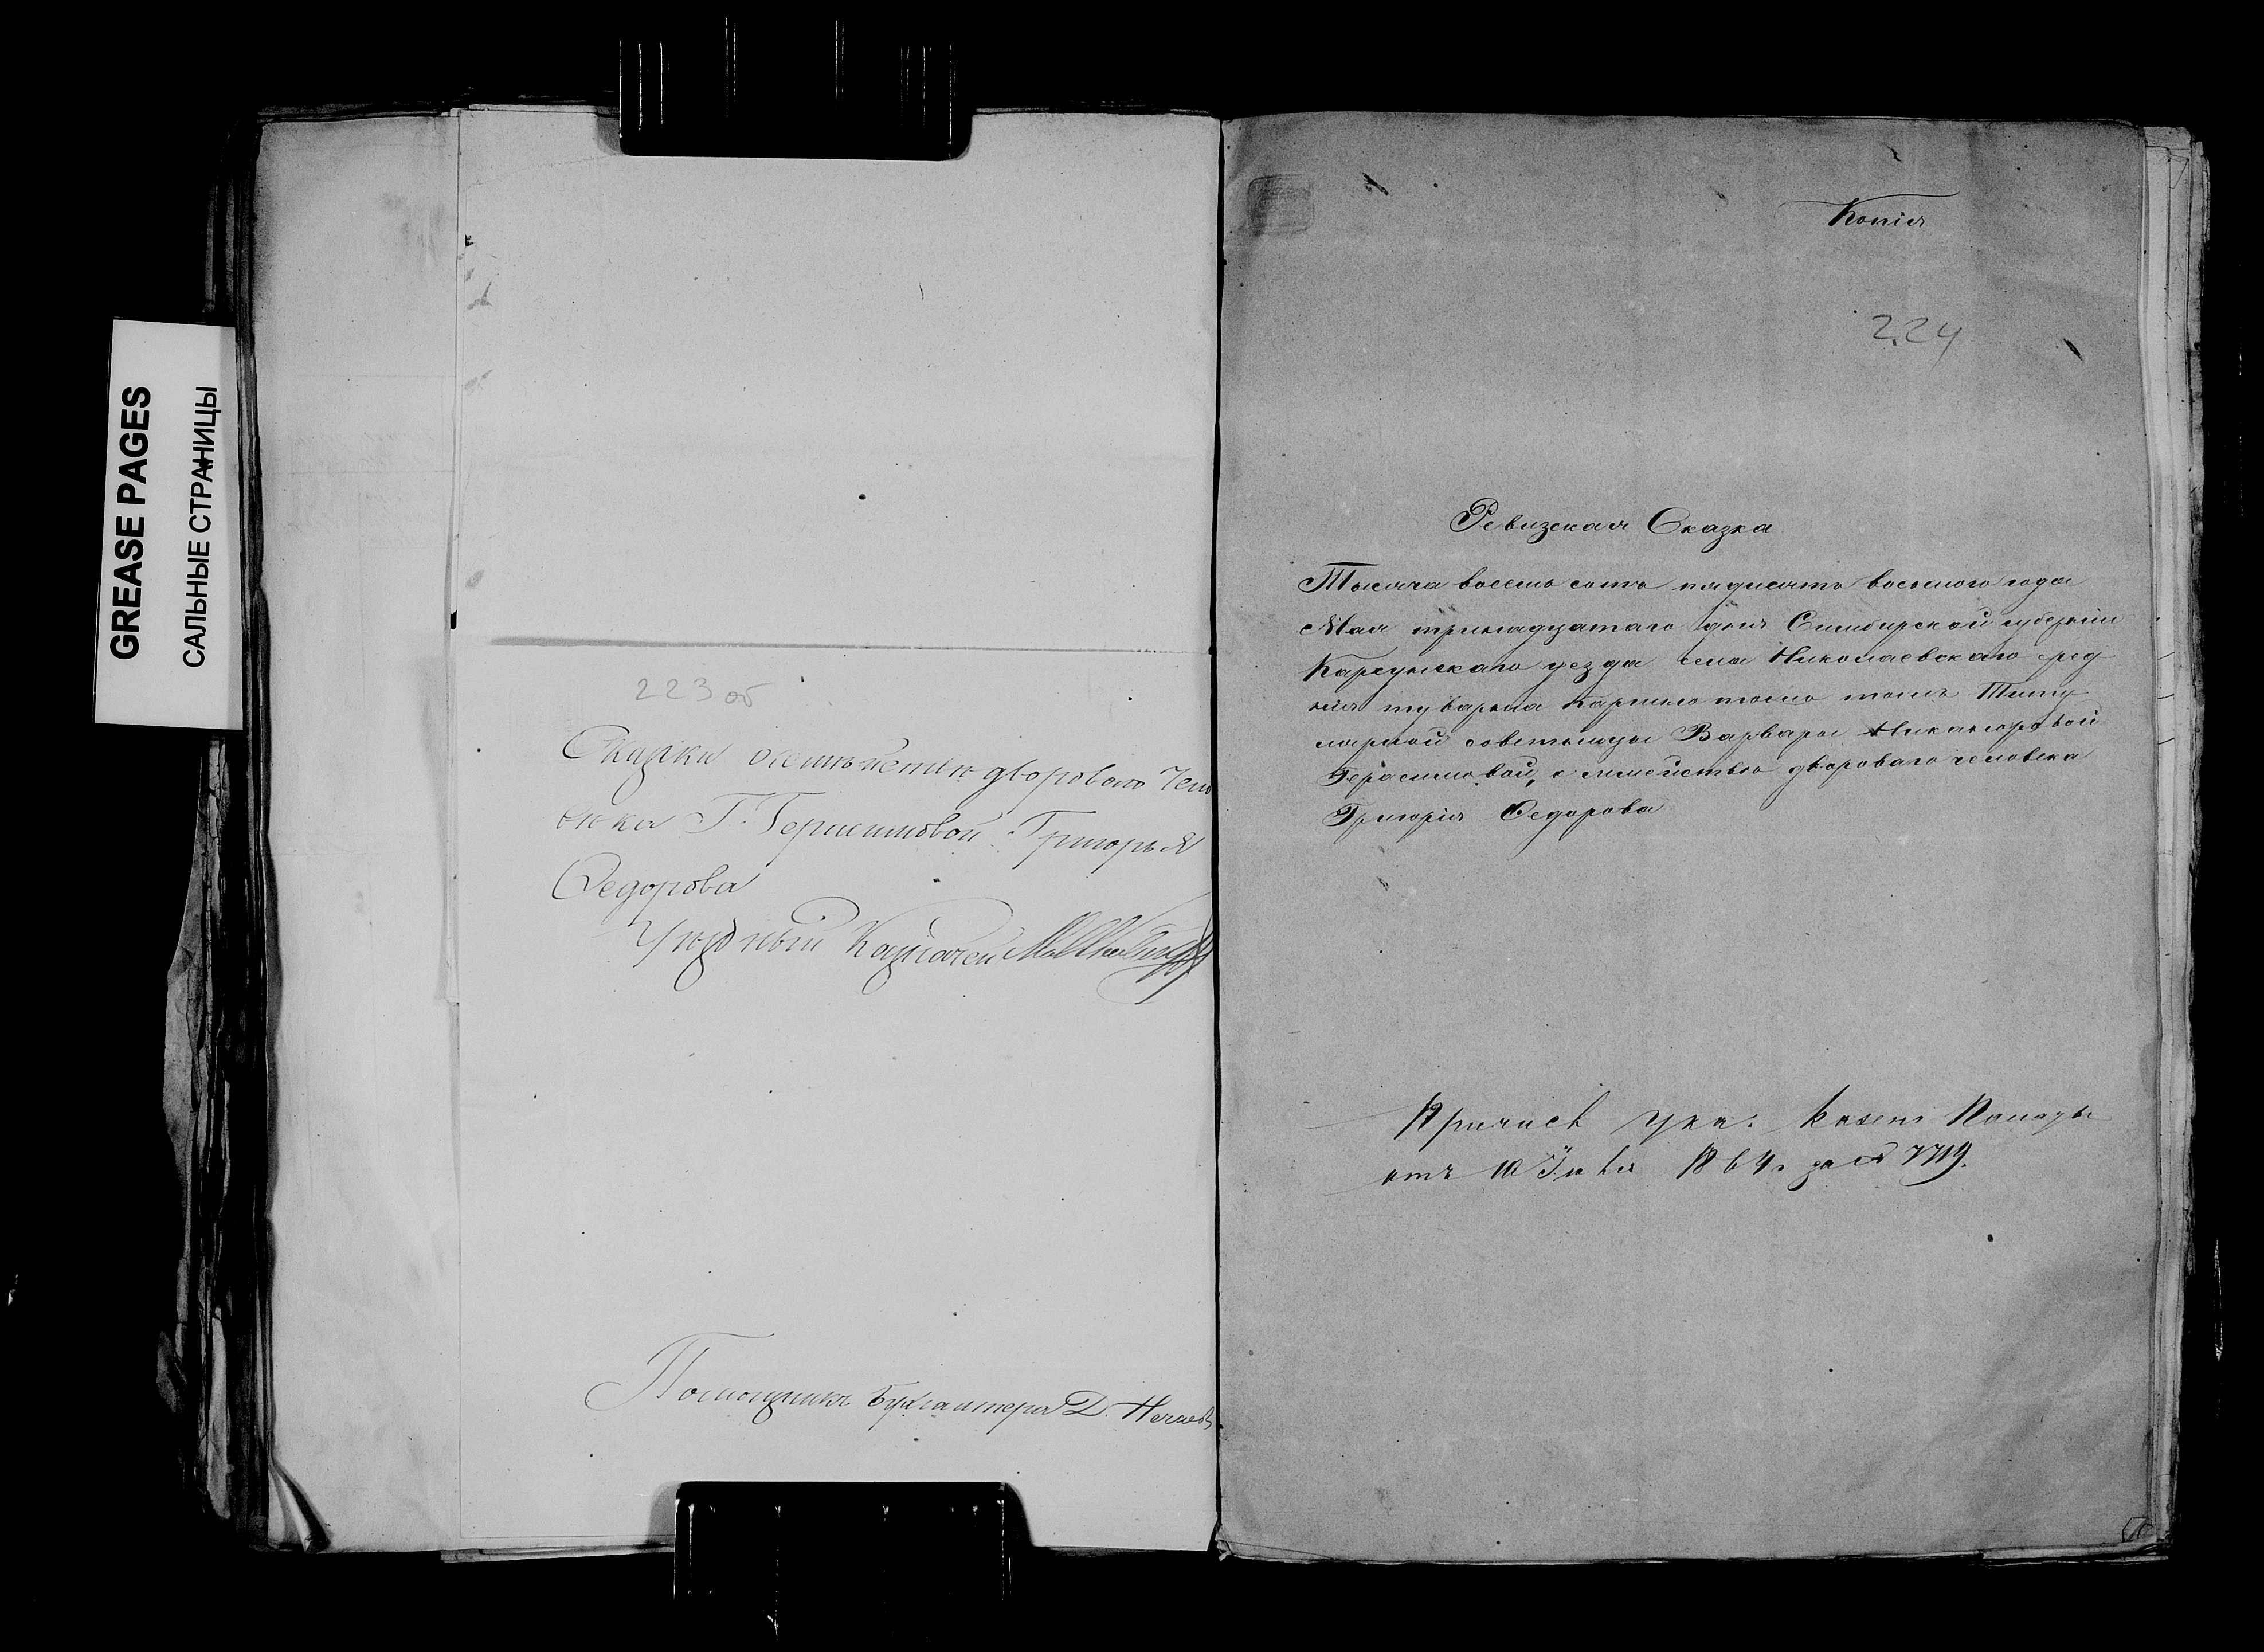 GREASE PAGES
САЛЬНЫЕ СТРАНИЦЫ
223 об
Сказки о семействе дворового чело
века Г. Герасимовой Григорья
Федорова
Уездный Казначей
Помощникъ Бухгалтера Д. Нечаевъ
Копія
224
Ревизская Сказка
Тысяча восемь сотъ пядисять восьмого года
Мая тринадцатаго дня Симбирской губерніи
Карсунскаго уезда села Николаевскаго
тожъ Титу
лярной советницы Варвары Никаноровой
Герасимовой, о семействе двороваго человека
Григорія Федорова
Причис ука: Казен Палаты
отъ 10 1864 г за № 7719.